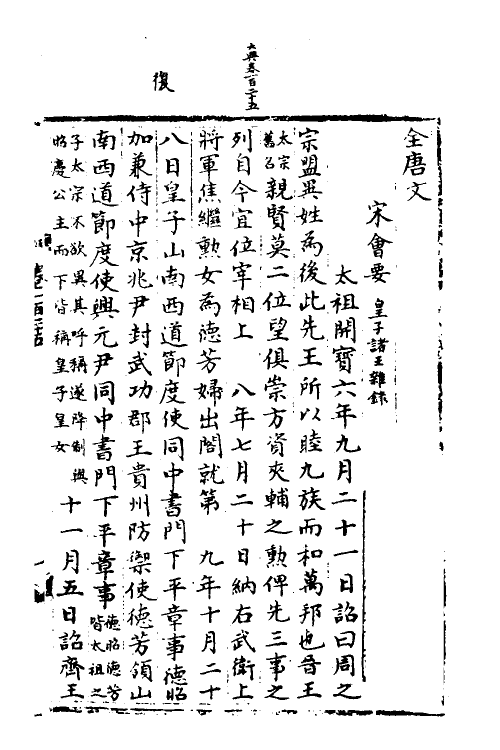 大典卷一百二十五
復
全唐文
宋會要 皇子諸王雜録
太祖開寶六年九月二十一日詔曰周之
宗盟異姓為後此先王所以睦九族而和萬邦也晉王
太宗舊名親賢莫二位望俱崇方資夾輔之勲俾先三事之
列自今宜位宰相上 八年七月二十日納右武衛上
將軍焦繼勲女為德芳婦出閤就第 九年十月二十
八日皇子山南西道節度使同中書門下平章事德昭
加兼侍中京兆尹封武功郡王貴州防禦使德芳領山
南西道節度使興元尹同中書門下平章事德昭德芳皆太祖之
子太宗不欲異其呼稱遂降制與昭慶公主而下皆稱皇子皇女 十一月五日詔齊王